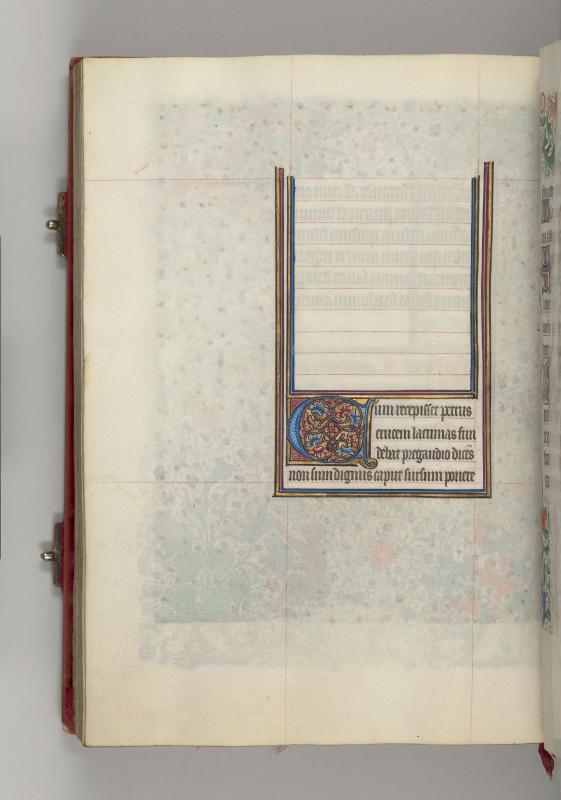 Cum recepisset petrus
crucem lacrimas fun
debat pregaudio dicẽs
non sum dignus caput sursum ponere